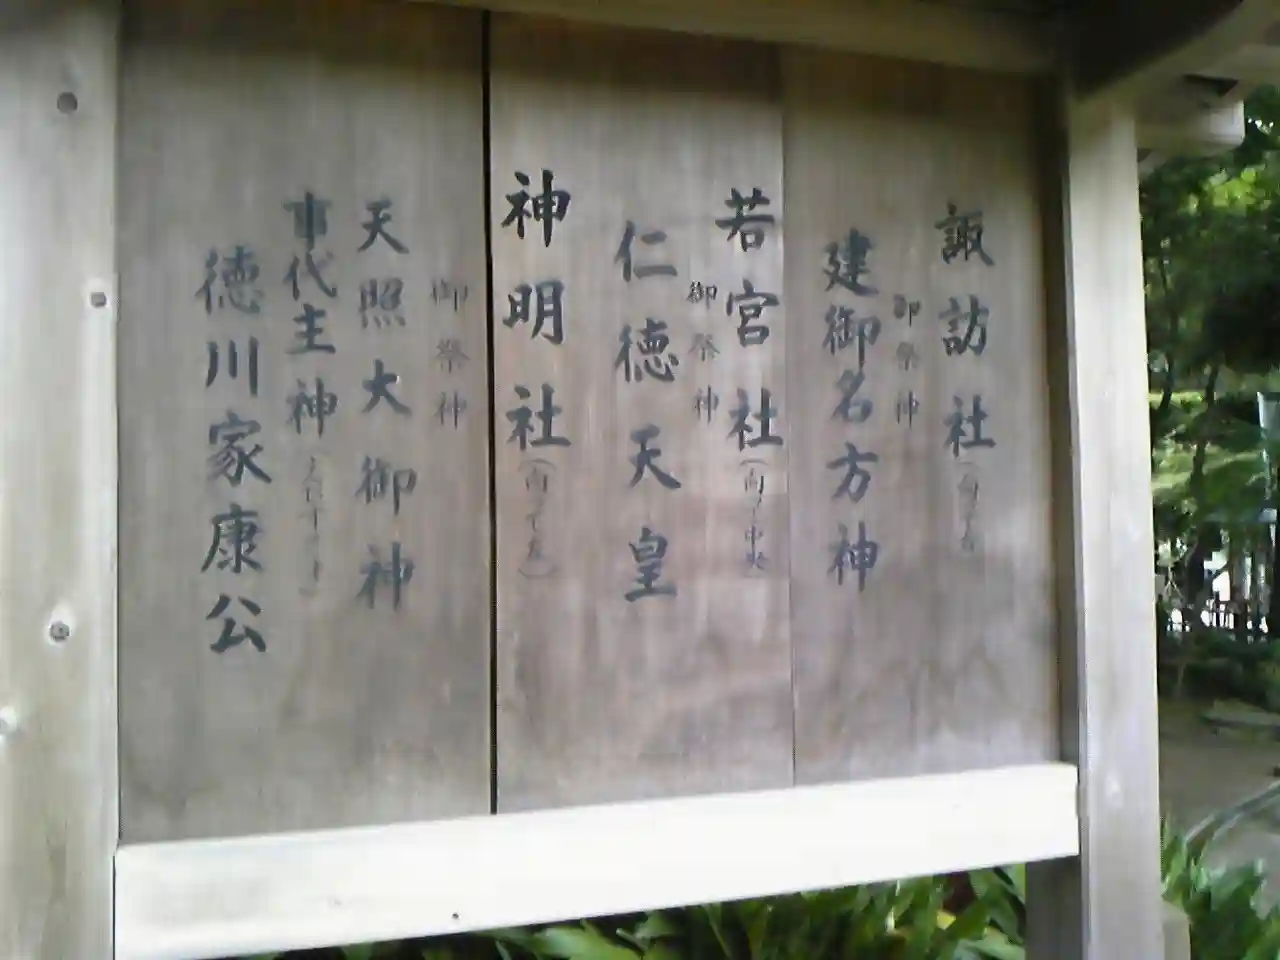 諏訪社(向って右)
御祭神
建御名方神
若宮社(向って中央)
御祭神
仁徳天皇
神明社(向って左)
御祭神
天照大御神
事代主神
徳川家康公